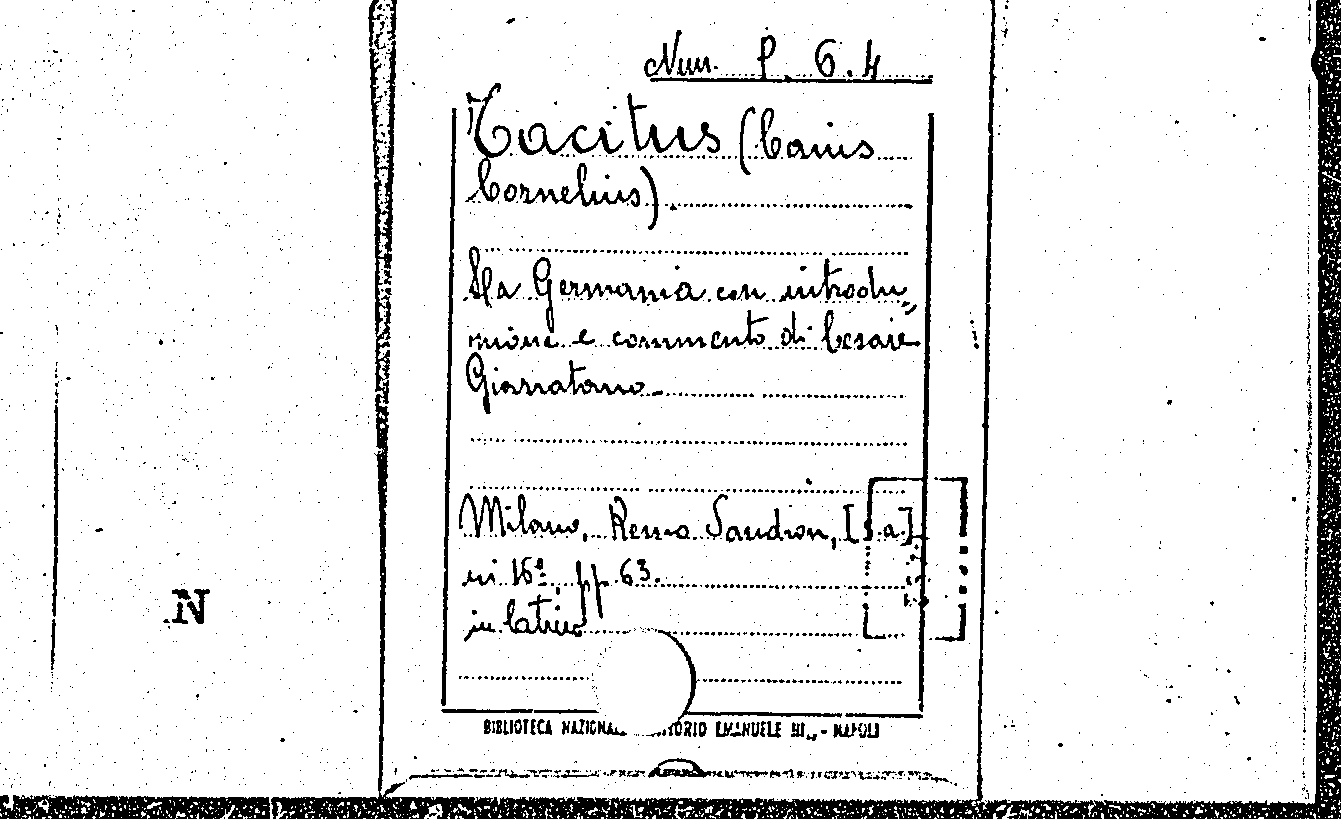 Num. P. 6. 4
Tacitus (Caius
Cornelius).
La Germania con introdu„
zione e commento di Cesare
Giarratano.
Milano, Remo Sandron, [s.a]
in 16º pp 63.
in latino
N
BIBLIOTECA NAZIONALE VITTORIO EMANUELE III,, - NAPOLI